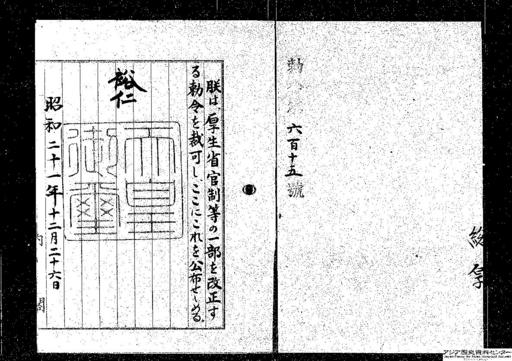 勅令第六百十五號
朕は、厚生省官制等の一部を改正す
る勅令を裁可し、ここにこれを公布せしめる。
裕仁
天皇御璽
昭和二十一年十二月二十六日
内閣
アジア歴史資料センター